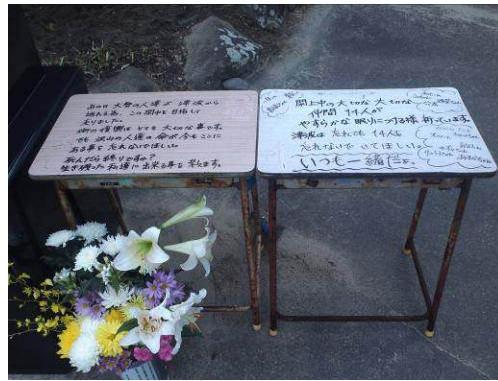 あの日 大勢の人達が 津波から
逃れる為、この閖中を目指して
走りました。
街の復興はとても 大切な事です。
でも 沢山の人達の命が今もここに
ある事を忘れないでほしい。
死んだら終りですか？
生き残った私達に出来る事を考えます。
閖上中の大切な大切な
仲間 14人が
やすらかな 眠りにつける様 祈っています。
津波は 忘れても 14人を
忘れないで いてほしい。
いつも一緒だよ。